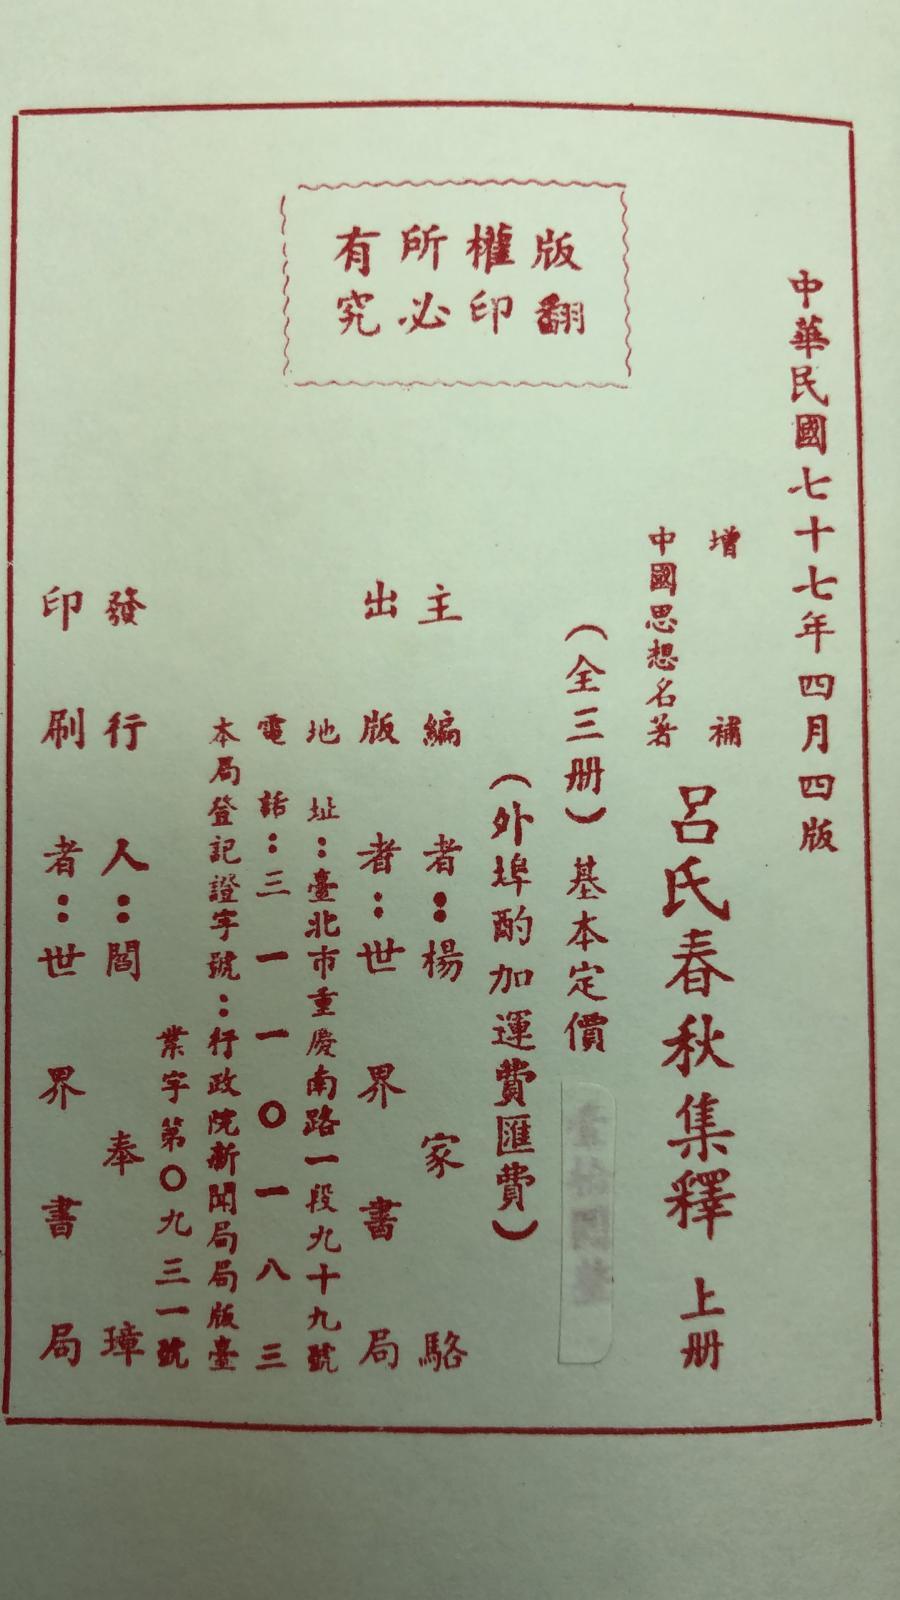 版權所有
翻印必究
中華民國七十七年四月四版
增補
中國思想名著
呂氏春秋集釋 上册
(全三册)基本定價
(外埠酌加運費匯費)
主編者:楊家駱
出版者:世界書局
地址:臺北市重慶南路一段九十九號
電話:三一一〇一八三
本局登記證字號:行政院新聞局局版臺
業字第〇九三一號
發行人:閻奉璋
印刷者:世界書局